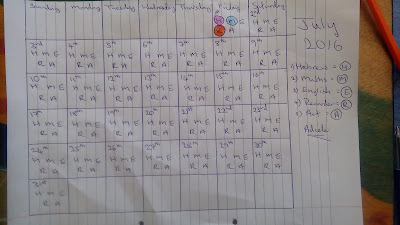 Sunday Monday Tuesday Wednesday Thursday Friday Saturday
July
2016
2nd
H M E H M E
R A R A
3rd 4th 5th 6th 7th 8th 9th
H M E H M E H M E H M E H M E H M E H M E
R A R A R A R A R A R A R A
10th 11th 12th 13th 14th 15th 16th
H M E H M E H M E H M E H M E H M E H M E
R A R A R A R A R A R A R A
17th 18th 19th 20th 21st 22nd 23rd
H M E H M E H M E H M E H M E H M E H M E
R A R A R A R A R A R A R A
24th 25th 26th 27th 28th 29th 30th
H M E H M E H M E H M E H M E H M E H M E
R A R A R A R A R A R A R A
31st
H M E
R A
1) Hebrew = H
2) Maths = M
3) English = E
= R
5) Art = A